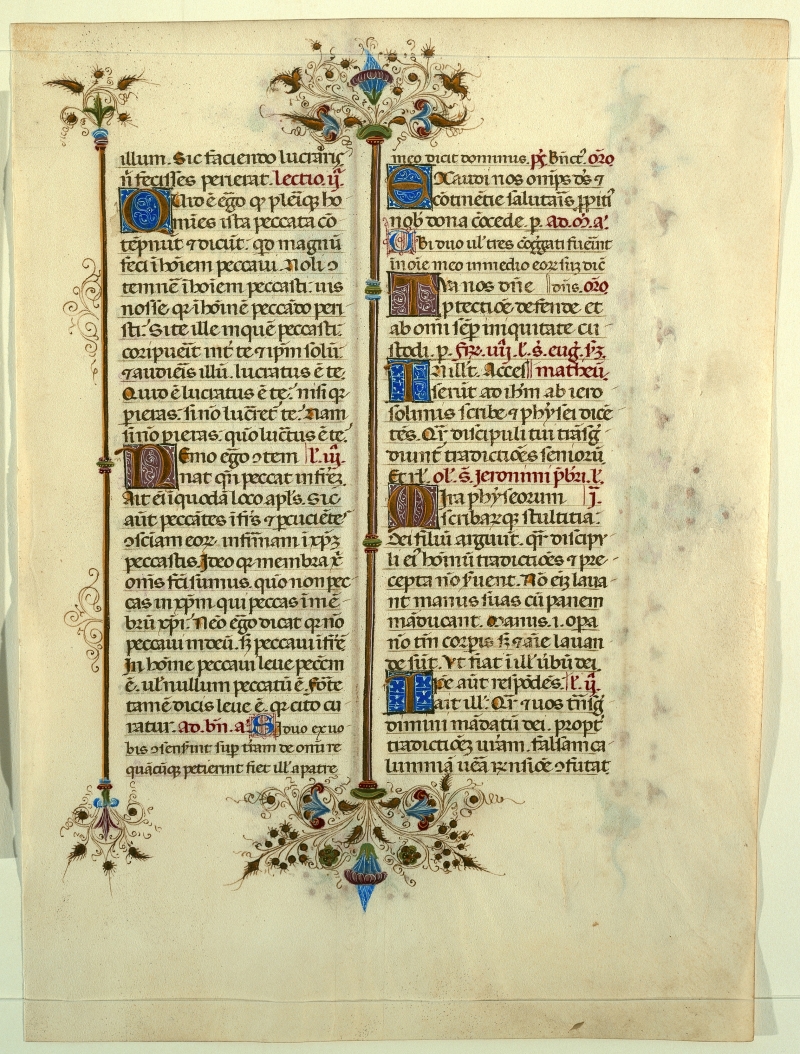 illum. Sic faciendo lucraris
ñ fecisses perierat. lectio. ij.
Quid ē ego qr pleriq; ho
mines ista peccata cō
tēpnūt ⁊ dicūt: qd magnū
feci ī hoīem peccaui. Noli ꝯ
temnē ī hoīem peccasti: uis
nosse qr ī hoīmē peccādo peri
sti: Si te ille inquē peccasti:
coripuerit int̄ te ⁊ ip̄m solū:
⁊ audieris illū. lucratus ē te.
Quid ē lucratus ē te. nisi qr
pieras: si nō lucrēt te: Nam
si nō pieras: quō luctus ē te.
Nemo ego ꝯtem l. iij.
nat qn̄ peccat in frēz.
Ait ei ī quodā loco apl̄s. Sic
aūt peccātes ī frīs ⁊ pcuciētes
ꝯsciam eor infirmam ī xp̄z
peccastis. Ideo qr membra xp̄
om̄s fc̄i sumus. quō non pec
cas in xp̄m qui peccas ī mē
brū xp̄i. Nēo ego dicat qr nō
peccaui in deū. sz peccaui ī frē
In hoīne peccaui leue pecc̄m
ē. ul nullum peccatū ē. Forte
tamē dicis leue ē. qr cito cu
ratur. ad. bn̄. a. Si duo ex uo
bis ꝯsenserint sup t̄ram de omī re
quacūq; petierint fiet ill a patre
meo dicit dominus. ps̄. Bn̄ct. or̄o
Exaudi nos om̄ps ds̄ ⁊
cōtinētie salutaris ppiti
nob dona cōcede. p. ad. m̄. a.
Ubi duo ul tres cōḡgati fuerint
in noīe meo in medio eor suz dic̄
Tua nos dn̄e dn̄s. or̄o
ptectiōe defende et
ab omī sēp iniquitate cu
stodi. p. Fr̄. iiij. l. s̄. eug̃. sz̄.
In illt. Acces̄ matheū
serūt ad ih̄m ab iero
solimis scribe ⁊ phȳsei dicē
tēs. Qr̄ discipuli tui trāsḡ
diunt̄ tradictiōes senioru
Et rl̄. ol. s̄. Jeronimi pb̄ri. l.
Mira phȳseorum i.
scribarūq; stultitia:
Dei filiū arguūt. qr̄ discipu
li ei homū tradictiōes ⁊ pre
cepta nō seruent. Nō ei laua
nt manus suas cū panem
māducant. Manus. i. opa
nō tm̄ corpis sz ⁊ aīe lauan
de sūt. Ut fiat ī ill ūbū dei.
Ipe aūt respōdēs. l. ij.
ait ill. Qr̄ ⁊ uos tn̄sg
dimini mādatū dei. propt̄
tradictiōez ur̄am. falsam ca
lummā uēa rn̄siōe ꝯfutat